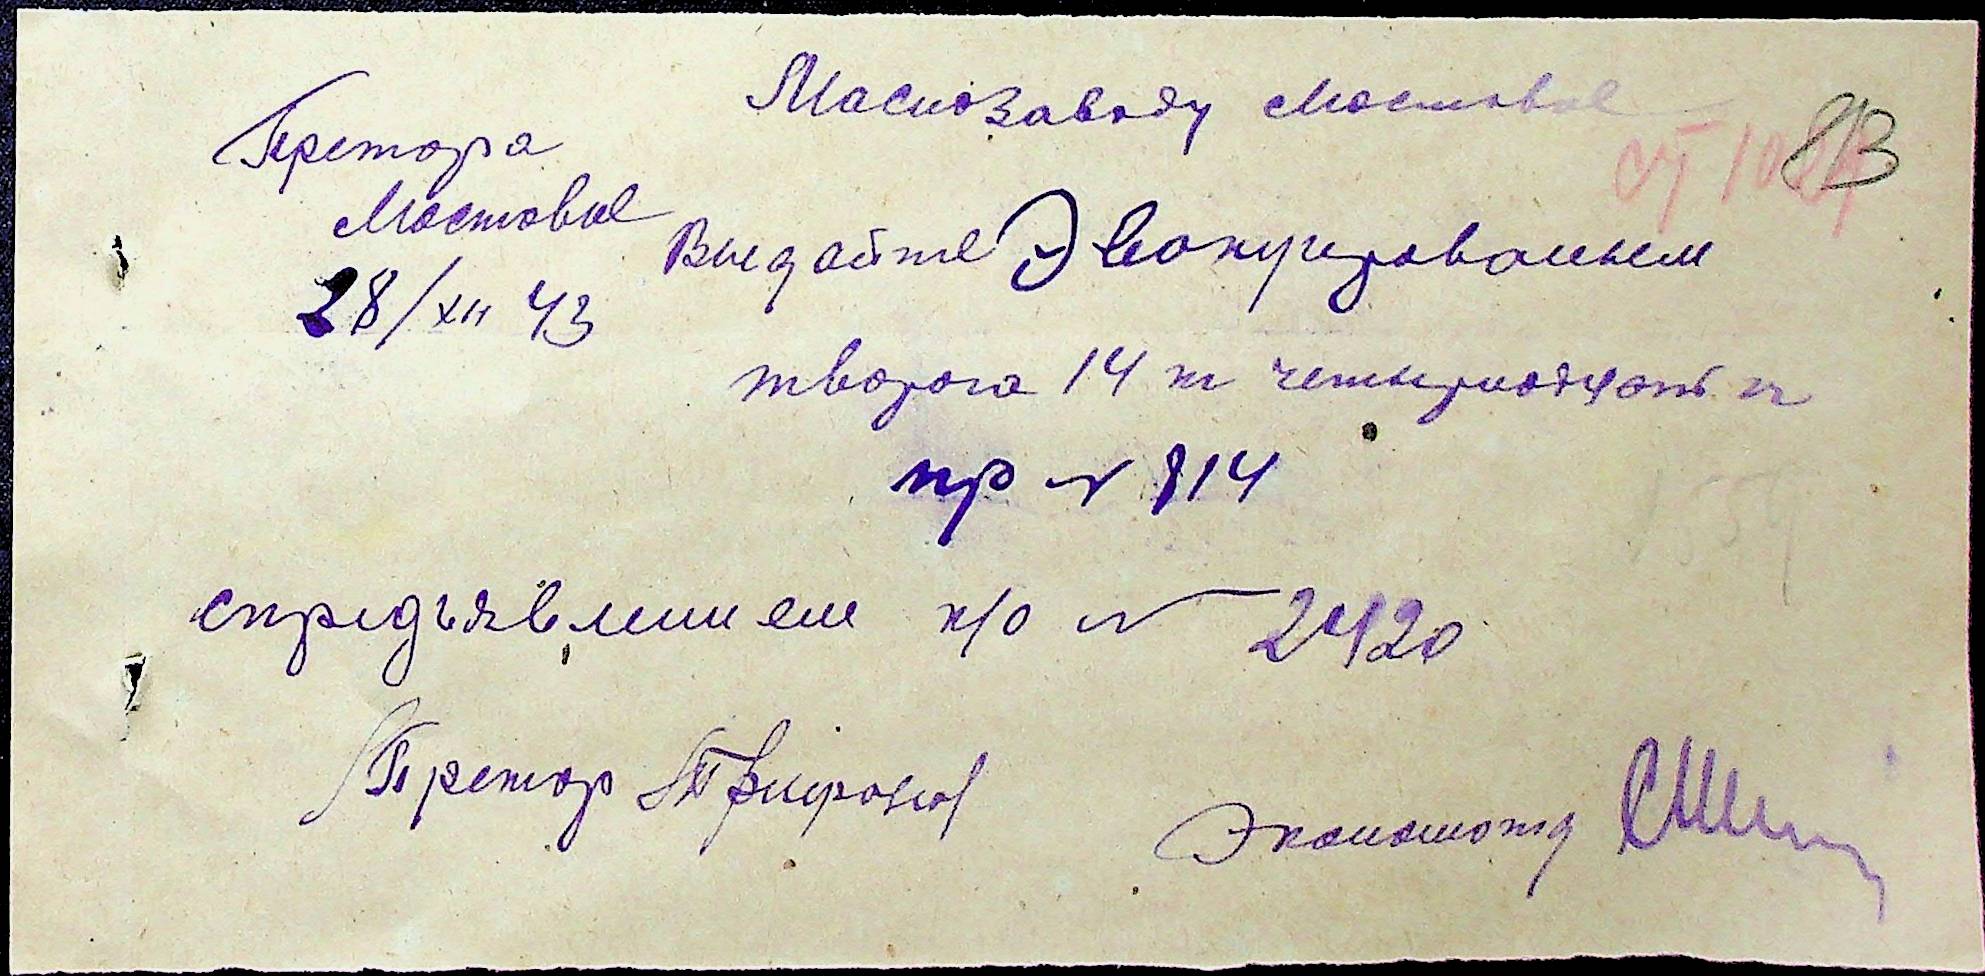 Маслозаводу Мостовое
83
Претора
Мостовое
28/XII 43
Выдайте Эвакуированым
творога 14 кг четырнадцать кг
пр № 814
спредъявлением к/о № 2420
Претор
Экономотд